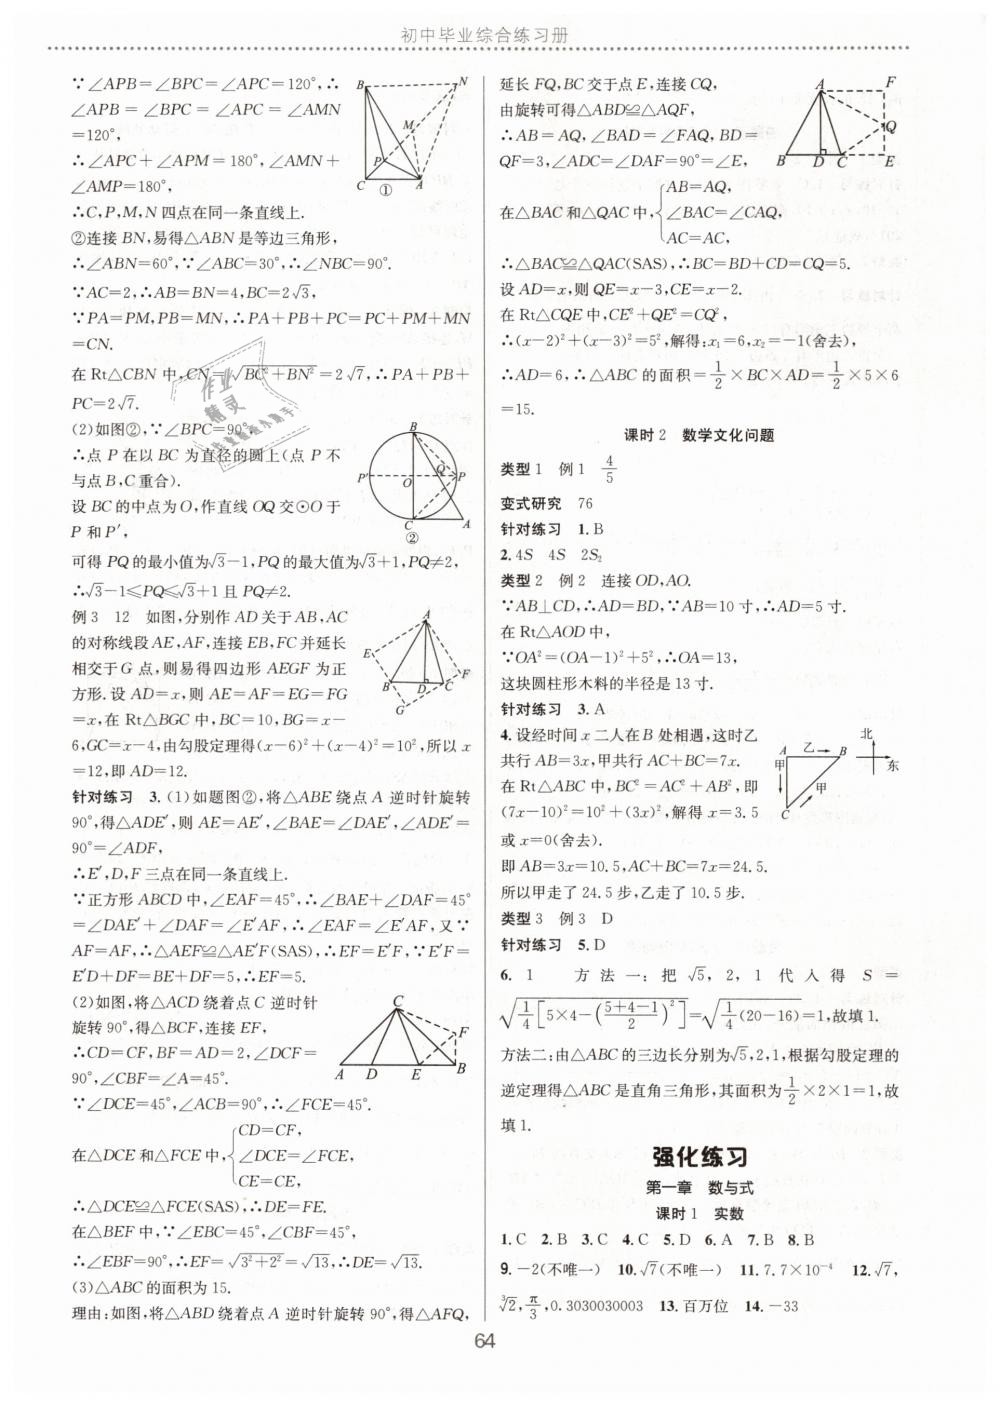 初中毕业综合练习册
∵∠APB=∠BPC=∠APC=120°,∴
∠APB=∠BPC=∠APC=∠AMN
=120°,
∴∠APC+∠APM=180°,∠AMN+
∠AMP=180°,
∴C,P,M,N四点在同一条直线上.
②连接BN,易得△ABN是等边三角形,
∴∠ABN=60°,∵∠ABC=30°,∴∠NBC=90°.
∵AC=2,∴AB=BN=4,BC=2√3,
∵PA=PM,PB=MN,∴PA+PB+PC=PC+PM+MN
=CN.
在Rt△CBN中,CN=√(BC²+BN²)=2√7,∴PA+PB+
PC=2√7.
(2)如图②,∵∠BPC=90°,
∴点P在以BC为直径的圆上(点P不
与点B,C重合).
设BC的中点为O,作直线OQ交⊙O于
P和P′,
可得PQ的最小值为√3-1,PQ的最大值为√3+1,PQ≠2,
∴√3-1≤PQ≤√3+1且PQ≠2.
例3 12 如图,分别作AD关于AB,AC
的对称线段AE,AF,连接EB,FC并延长
相交于G点,则易得四边形AEGF为正
方形.设AD=x,则AE=AF=EG=FG
=x,在Rt△BGC中,BC=10,BG=x-
6,GC=x-4,由勾股定理得(x-6)²+(x-4)²=10²,所以x
=12,即AD=12.
针对练习 3.(1)如题图②,将△ABE绕点A逆时针旋转
90°,得△ADE′,则AE=AE′,∠BAE=∠DAE′,∠ADE′=
90°=∠ADF,
∴E′,D,F三点在同一条直线上.
∵正方形ABCD中,∠EAF=45°,∴∠BAE+∠DAF=45°
=∠DAE′+∠DAF=∠E′AF,∴∠EAF=∠E′AF,又∵
AF=AF,∴△AEF≌△AE′F(SAS),∴EF=E′F,∵E′F=
E′D+DF=BE+DF=5,∴EF=5.
(2)如图,将△ACD绕着点C逆时针
旋转90°,得△BCF,连接EF,
∴CD=CF,BF=AD=2,∠DCF=
90°,∠CBF=∠A=45°.
∵∠DCE=45°,∠ACB=90°,∴∠FCE=45°.
在△DCE和△FCE中,{CD=CF,
∠DCE=∠FCE,
CE=CE,
∴△DCE≌△FCE(SAS),∴DE=FE.
在△BEF中,∵∠EBC=45°,∠CBF=45°,
∴∠EBF=90°,∴EF=√(3²+2²)=√13,∴DE=√13.
(3)△ABC的面积为15.
理由:如图,将△ABD绕着点A逆时针旋转90°,得△AFQ,
B N M P C A ①
B P′ O Q P C A ②
A E F B D C G
C F A D E B
延长FQ,BC交于点E,连接CQ,
由旋转可得△ABD≌△AQF,
∴AB=AQ,∠BAD=∠FAQ,BD=
QF=3,∠ADC=∠DAF=90°=∠E,
在△BAC和△QAC中,{AB=AQ,
∠BAC=∠CAQ,
AC=AC,
∴△BAC≌△QAC(SAS),∴BC=BD+CD=CQ=5.
设AD=x,则QE=x-3,CE=x-2.
在Rt△CQE中,CE²+QE²=CQ²,
∴(x-2)²+(x-3)²=5²,解得:x₁=6,x₂=-1(舍去),
∴AD=6,∴△ABC的面积=1/2×BC×AD=1/2×5×6
=15.
A F Q B D C E
课时2 数学文化问题
类型1 例1 4/5
变式研究 76
针对练习 1.B
2.4S 4S 2S₂
类型2 例2 连接OD,AO.
∵AB⊥CD,∴AD=BD,∵AB=10寸,∴AD=5寸.
在Rt△AOD中,
∵OA²=(OA-1)²+5²,∴OA=13,
这块圆柱形木料的半径是13寸.
针对练习 3.A
4.设经时间x二人在B处相遇,这时乙
共行AB=3x,甲共行AC+BC=7x.
在Rt△ABC中,BC²=AC²+AB²,即
(7x-10)²=10²+(3x)²,解得x=3.5
或x=0(舍去).
即AB=3x=10.5,AC+BC=7x=24.5.
所以甲走了24.5步,乙走了10.5步.
A 乙 B 甲 甲 C 北 东
类型3 例3 D
针对练习 5.D
6.1 方法一:把√5,2,1代入得S=
√(1/4[5×4-((5+4-1)/2)²])=√(1/4(20-16))=1,故填1.
方法二:由△ABC的三边长分别为√5,2,1,根据勾股定理的
逆定理得△ABC是直角三角形,其面积为1/2×2×1=1,故
填1.
强化练习
第一章 数与式
课时1 实数
1.C 2.B 3.C 4.C 5.D 6.A 7.B 8.B
9.-2(不唯一) 10.√7(不唯一) 11.7.7×10⁻⁴ 12.√7,
³√2,π/3,0.3030030003 13.百万位 14.-33
64